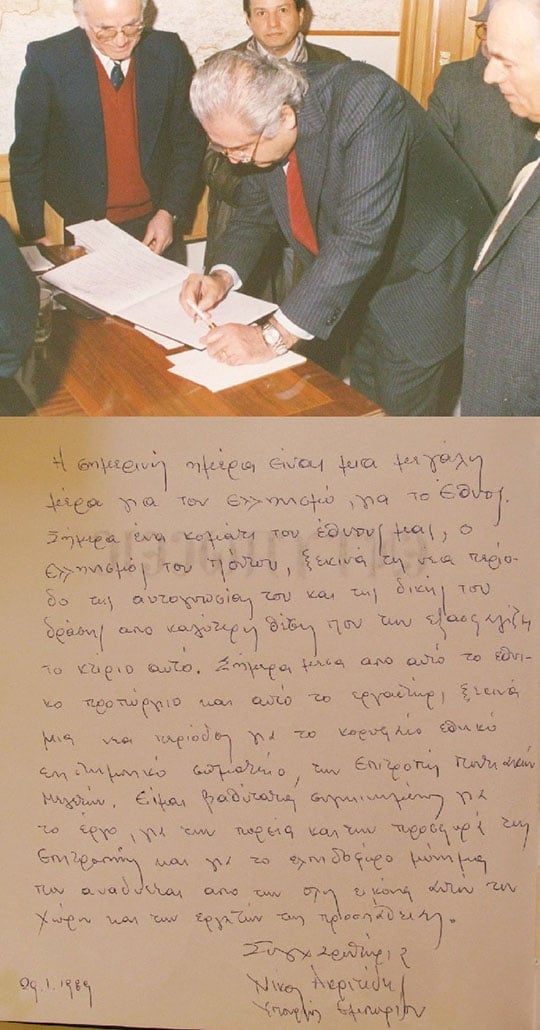 Η σημερινή ημέρα είναι μια μεγάλη
μέρα για τον ελληνισμό, για το Έθνος.
Σήμερα ένα κομμάτι του έθνους μας, ο
ελληνισμός του πόντου, ξεκινά τη νέα περίο-
δο της αυτογνωσίας του και της δικής του
δράσης από καλύτερη θέση που την εξασφαλίζει
το κτίριο αυτό. Σήμερα μέσα από αυτό το εθνι-
κό προπύργιο και αυτό το εργαστήρι, ξεκινά
μια νέα περίοδος για το κορυφαίο εθνικό
επιστημονικό σωματείο, την Επιτροπή Ποντιακών
Μελετών. Είμαι βαθύτατα συγκινημένος για
το έργο, για την πορεία και την προσφορά της
Επιτροπής και για το ελπιδοφόρο μήνυμα
που αναδύεται από την όλη εικόνα αυτού του
χώρου και των εργατών της προσπάθειας.
Συγχαρητήρια
Νίκος Ακριτίδης
Υπουργός Εμπορίου
09.1.1989